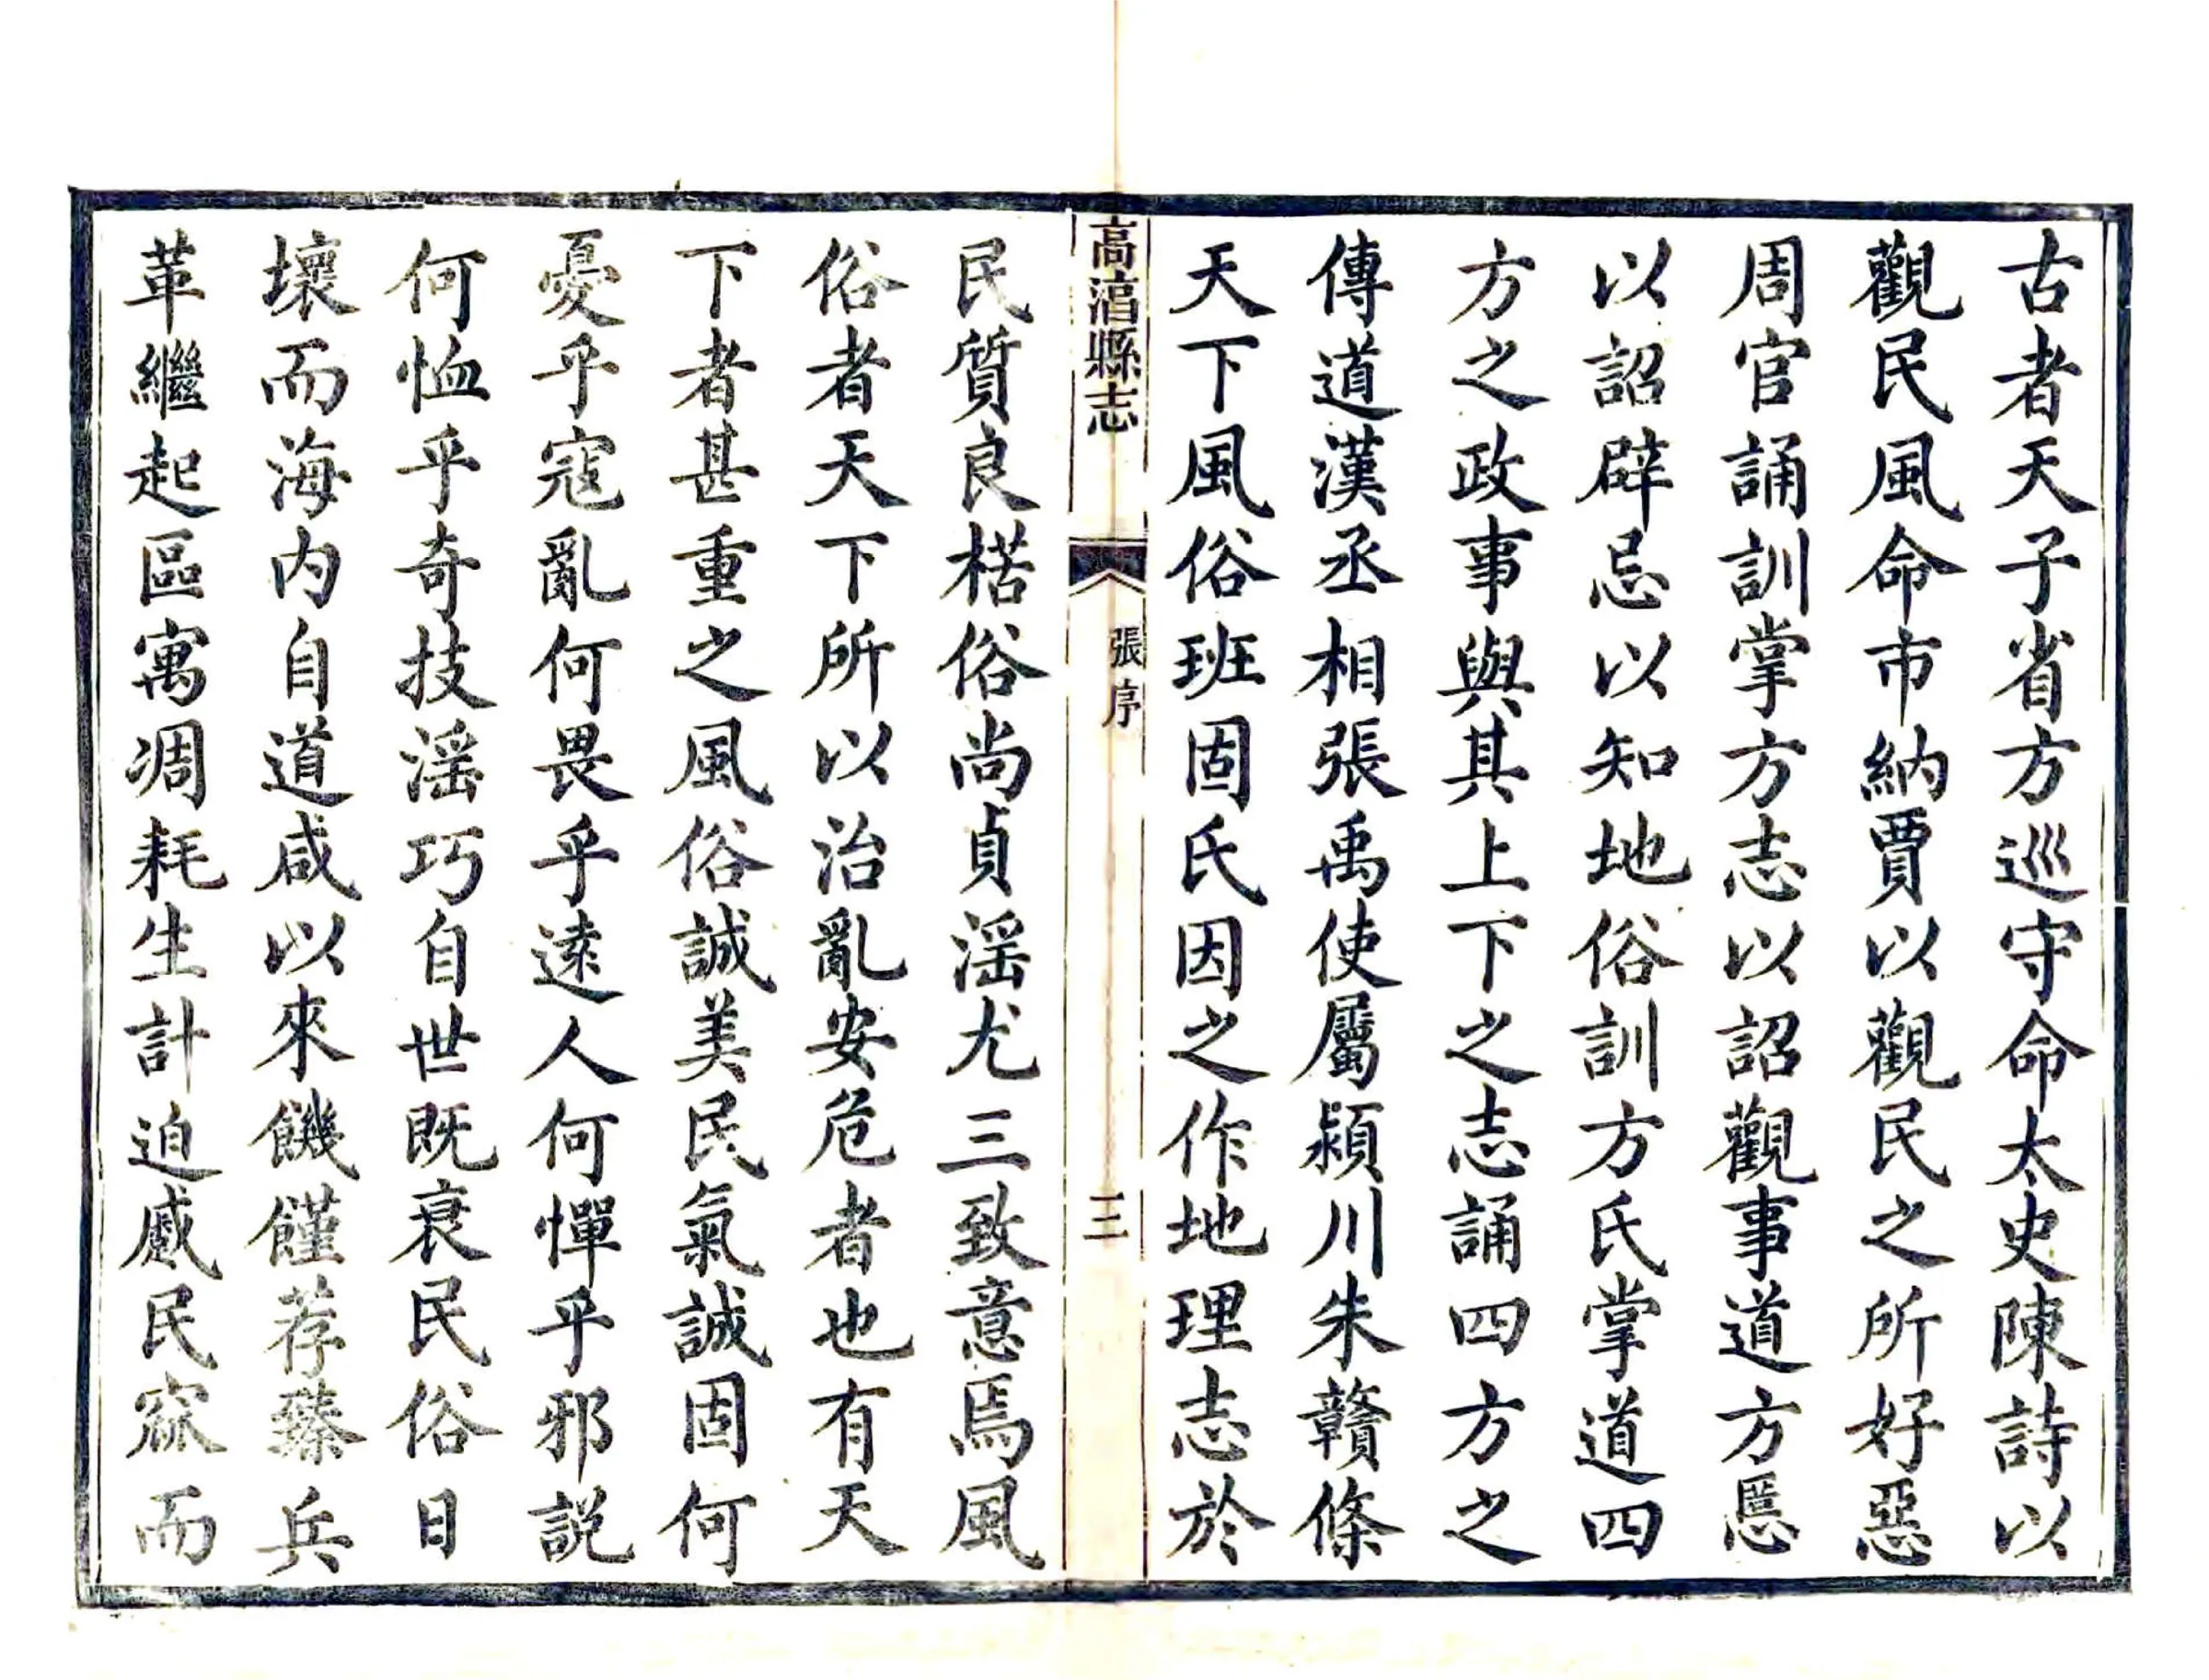 古者天子省方巡守命太史陳詩以
觀民風命市納賈以觀民之所好惡
周官誦訓掌方志以詔觀事道方慝
以詔辟忌以知地俗訓方氏掌道四
方之政事與其上下之志誦四方之
傳道漢丞相張禹使屬潁川朱贛條
天下風俗班固氏因之作地理志於
高湻縣志
張序
三
民質良楛俗尚貞滛尤三致意焉風
俗者天下所以治亂安危者也有天
下者甚重之風俗誠美民氣誠固何
憂乎寇亂何畏乎逺人何憚乎邪説
何恤乎奇技滛巧自世既衰民俗日
壞而海内自道咸以來饑饉荐臻兵
革繼起區寓凋耗生計迫慼民窳而